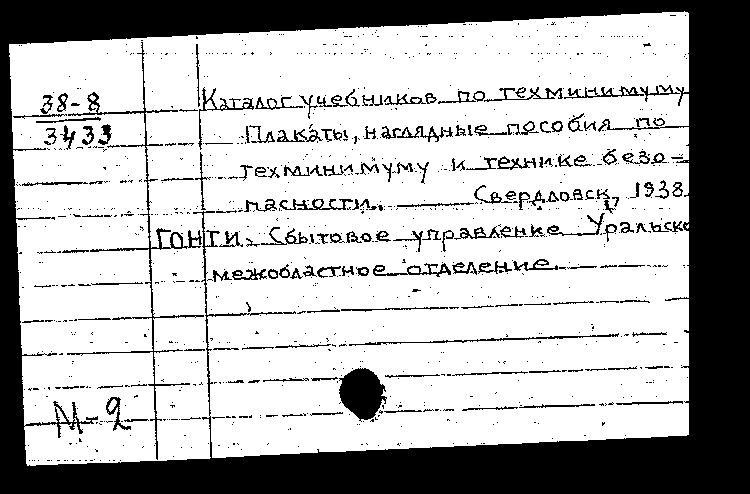 38-8
3433
Каталог учебников по техминимуму
Плакаты, наглядные пособия по
техминимуму и технике безо=
пасности. Свердловск, 1938
ГОНТИ. Сбытовое управление Уральско
межобластное отделение.
М-2